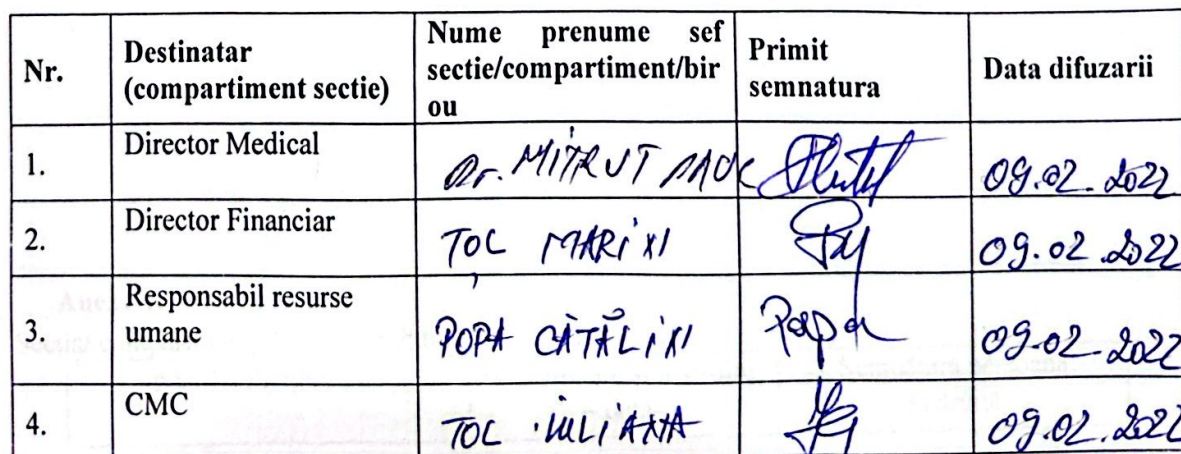 Nr.
Destinatar
(compartiment sectie)
Nume prenume sef
sectie/compartiment/bir
ou
Primit
semnatura
Data difuzarii
1.
Director Medical
Dr. MITRUT
09.02.2022
2.
Director Financiar
TOC MARiN
09.02.2022
3.
Responsabil resurse
umane
POPA CĂTĂLiN
Popa
09.02.2022
4.
CMC
TOC iULiANA
09.02.2022